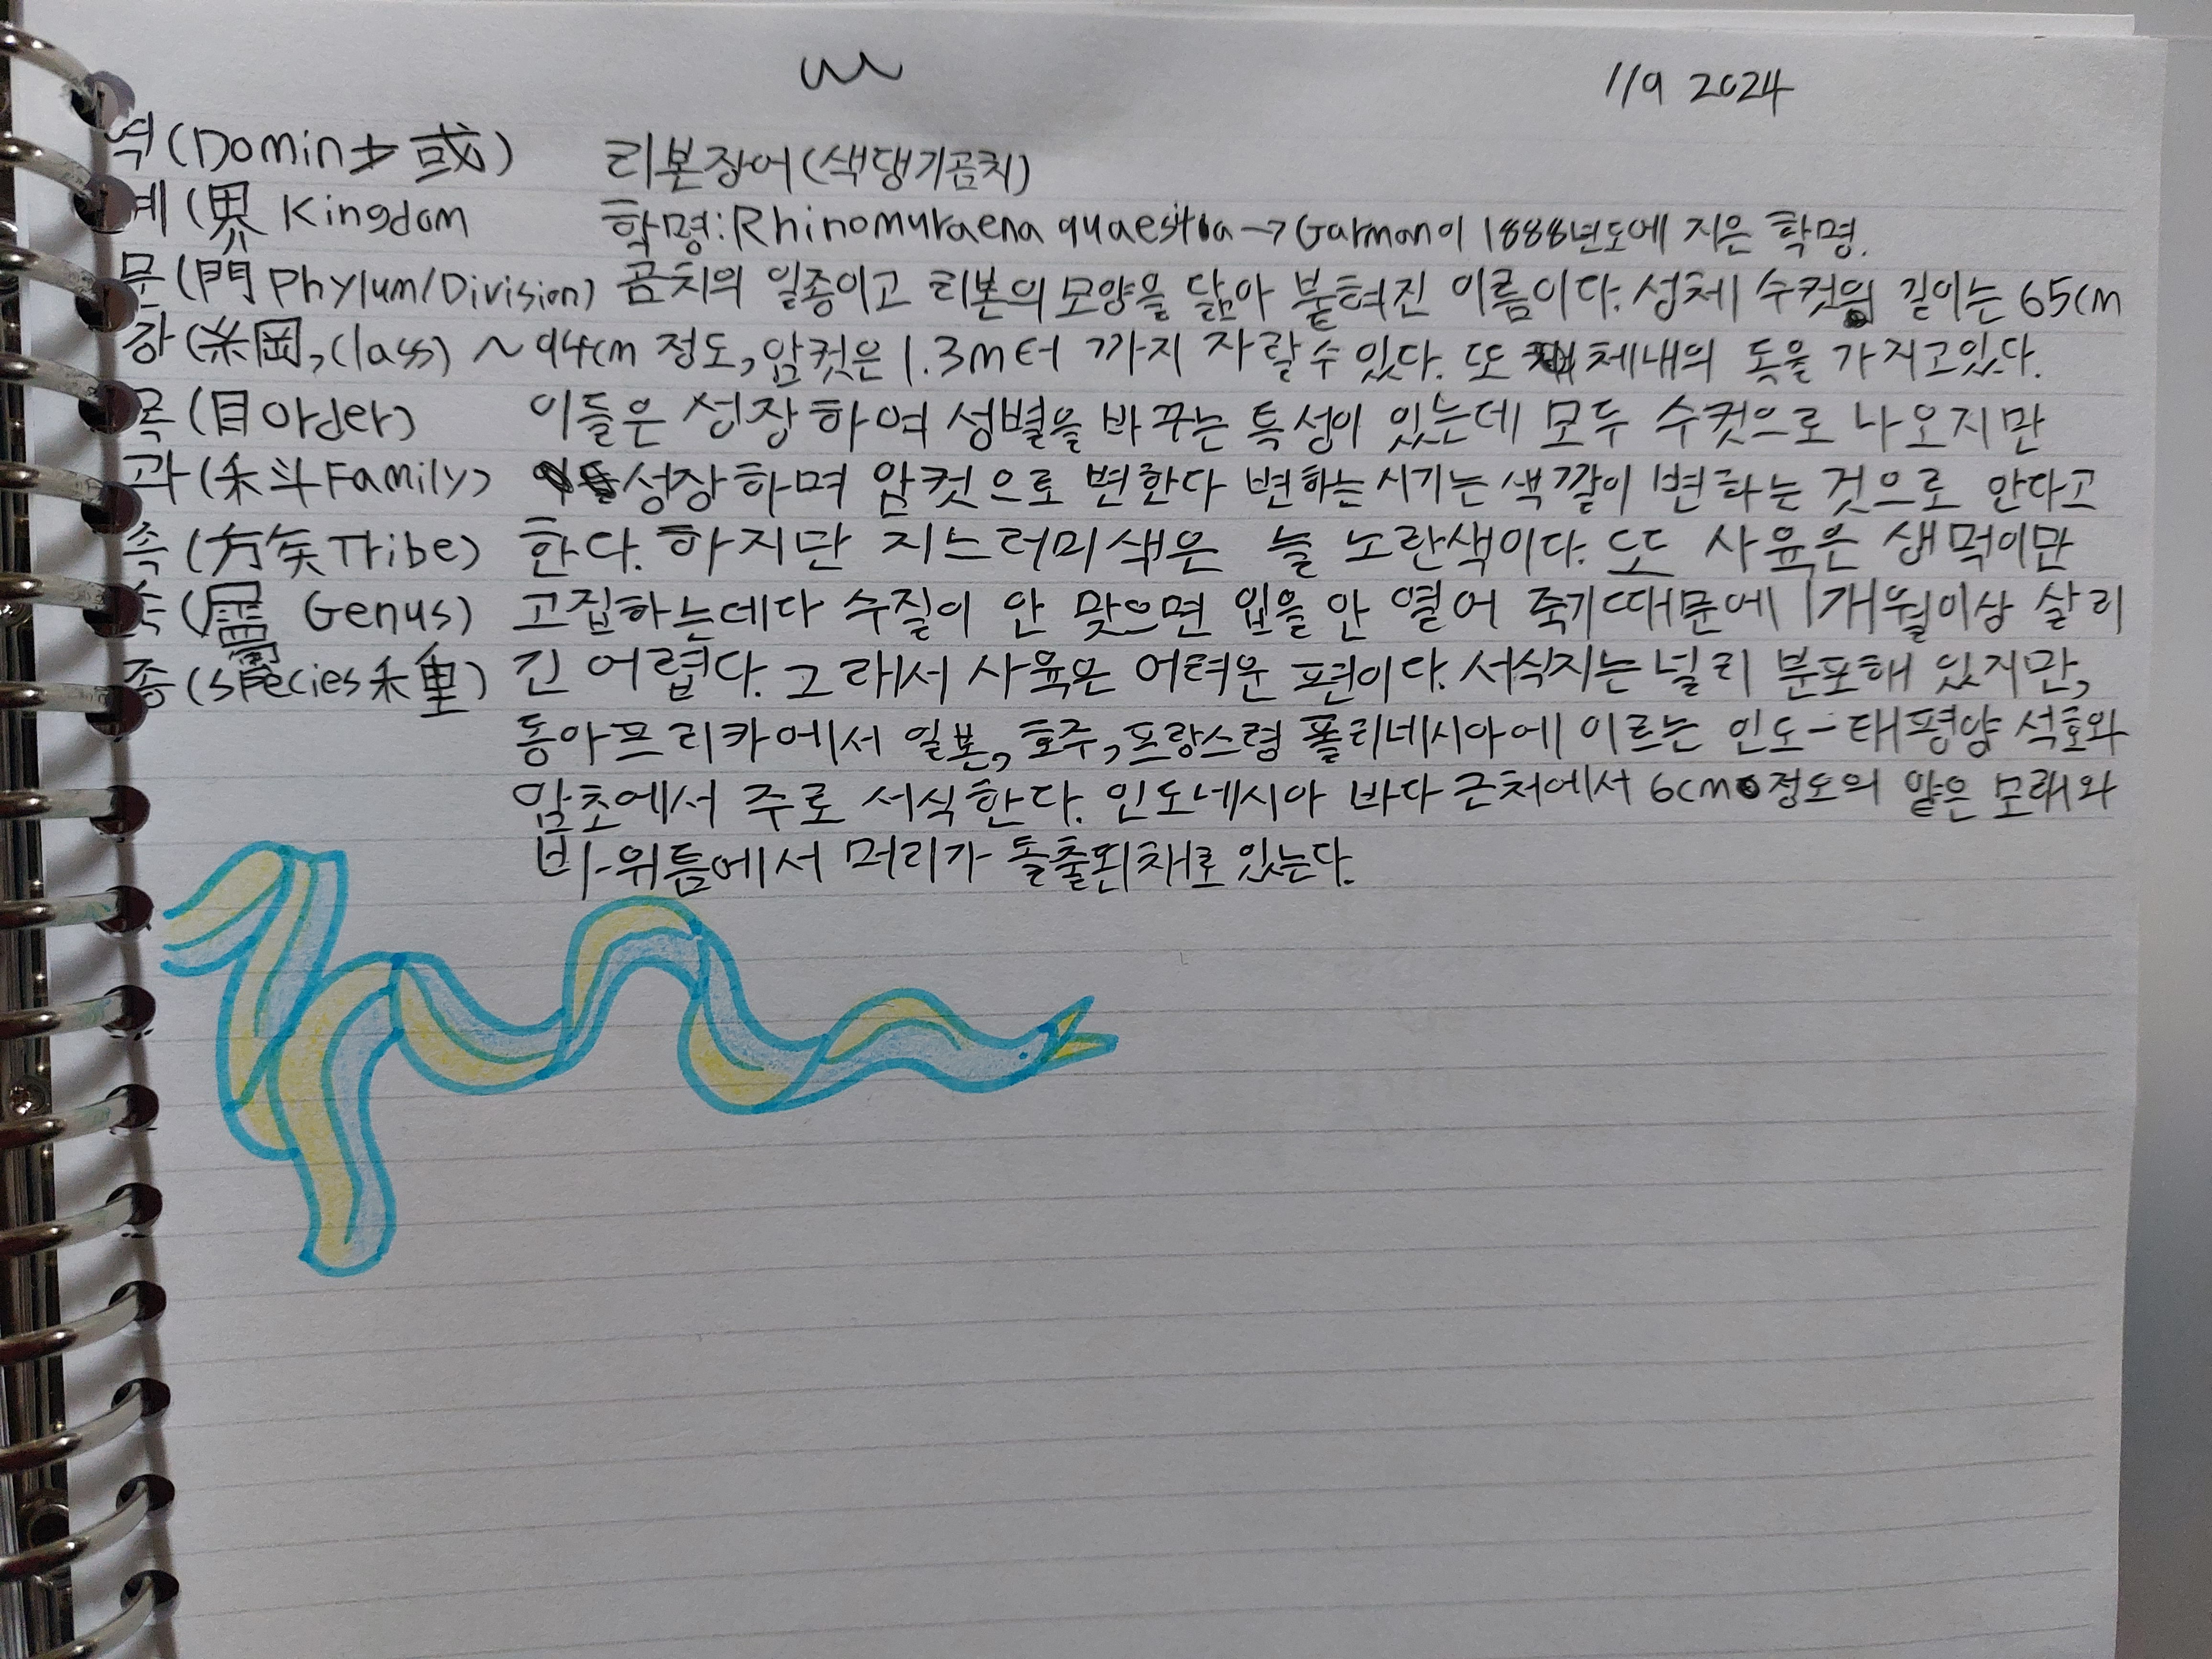 11/9 2024
역(Domin土或)
리본장어(색댕기곰치)
계(界 Kingdom
학명:Rhinomuraena quaesitia→Garman이 1888년도에 지은 학명.
문(門 Phylum/Division)
곰치의 일종이고 리본의 모양을 닮아 붙혀진 이름이다. 성체 수컷의 길이는 65cm
강(糸岡, Class)
~94cm 정도, 암컷은 1.3m터 까지 자랄수 있다. 또 체내의 독을 가지고있다.
목(目Order)
이들은 성장하여 성별을 바꾸는 특성이 있는데 모두 수컷으로 나오지만
과(禾斗Family)
성장하며 암컷으로 변한다 변하는시기는 색깔이 변하는 것으로 안다고
족(方矢Tribe)
한다. 하지만 지느러미색은 늘 노란색이다. 또 사육은 생먹이만
속( Genus)
고집하는데다 수질이 안 맞으면 입을 안 열어 죽기때문에 1개월이상 살리
종(species禾重)
긴 어렵다. 그래서 사육은 어려운 편이다. 서식지는 널리 분포해 있지만,
동아프리카에서 일본, 호주, 프랑스령 폴리네시아에 이르는 인도-태평양 석호와
암초에서 주로 서식한다. 인도네시아 바다 근처에서 6cm 정도의 얕은 모래와
바위틈에서 머리가 돌출된채로 있는다.